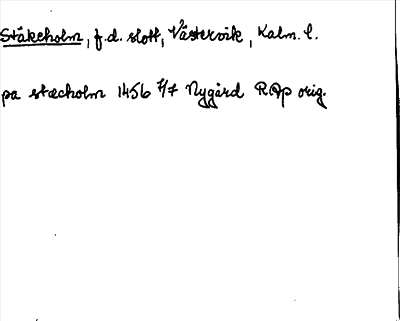 Ståkeholm, f.d. slott, Västervik, Kalm. l.
pa stæcholm 1456 7/7 Nygård RAp orig.